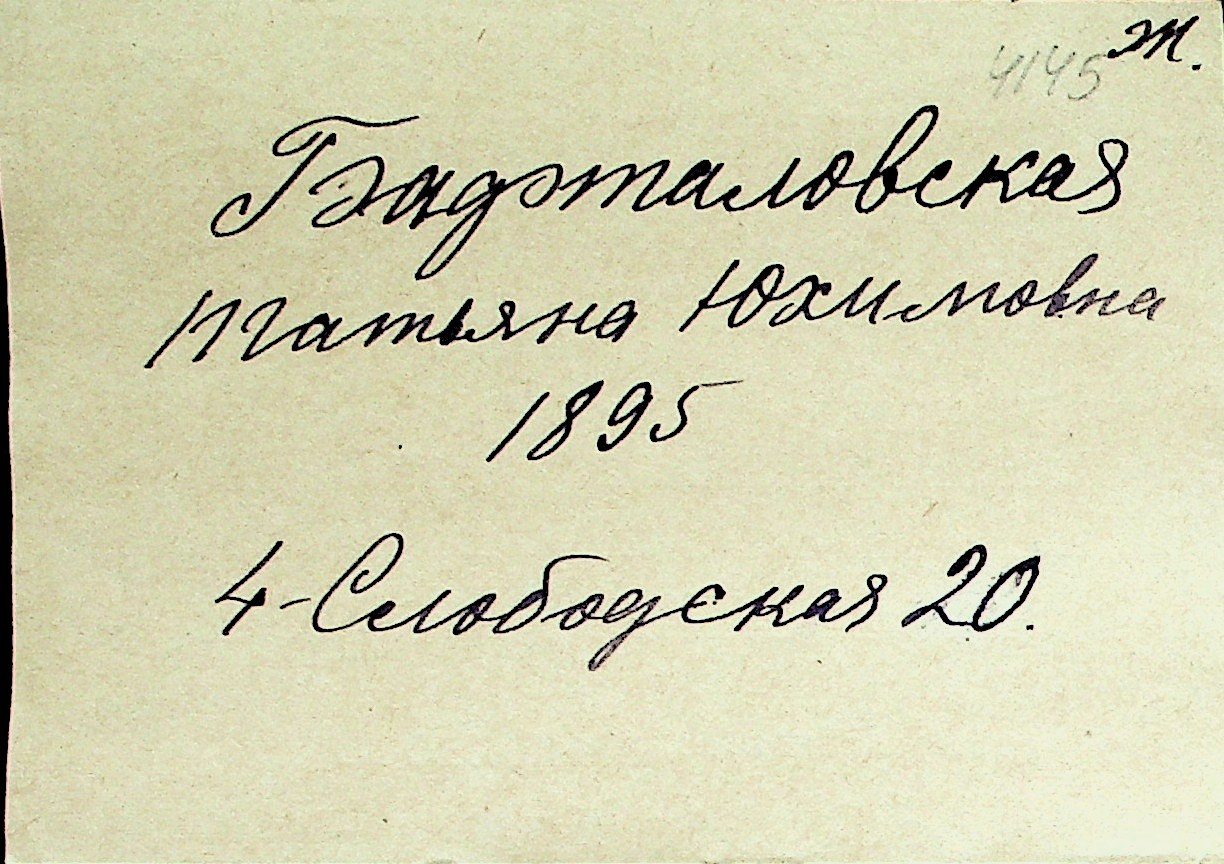 4145 ж.
Татьяна Юхимовна
1895
4-Слободская 20.